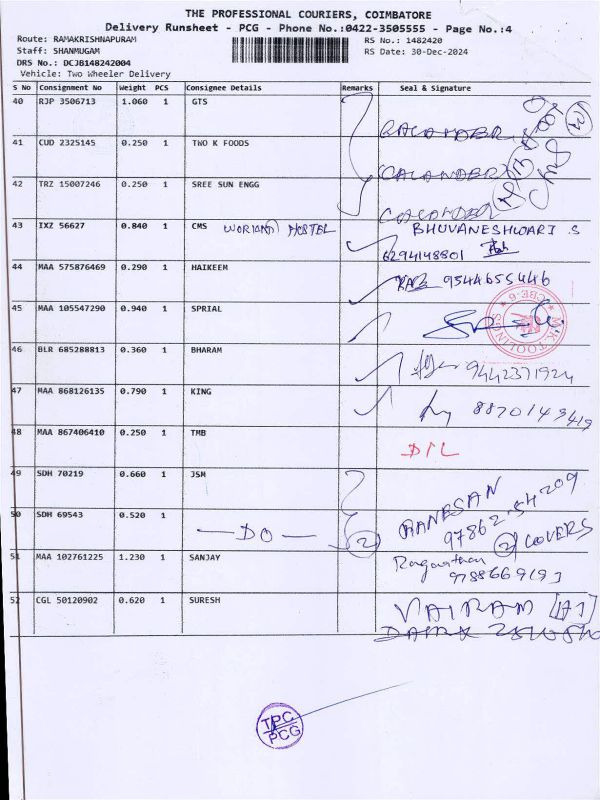 THE PROFESSIONAL COURIERS, COIMBATORE
Delivery Runsheet - PCG - Phone No.:0422-3505555 - Page No.:4
Route: RAMAKRISHNAPURAM
RS No.: 1482420
Staff: SHANMUGAM
RS Date: 30-Dec-2024
DRS No.: DCJB148242004
Vehicle: Two Wheeler Delivery
S No Consignment No Weight PCS Consignee Details Remarks Seal & Signature
40 RJP 3506713 1.060 1 GTS
41 CUD 2325145 0.250 1 TWO K FOODS
42 TRZ 15007246 0.250 1 SREE SUN ENGG
43 IXZ 56627 0.840 1 CMS HOSTEL BHUVANESHWARI S
6294148801
44 MAA 575876469 0.290 1 HAIKEEM 9544655446
45 MAA 105547290 0.940 1 SPRIAL
46 BLR 685288813 0.360 1 BHARAM 9442371924
47 MAA 868126135 0.790 1 KING 8870149419
48 MAA 867406410 0.250 1 TMB D/L
49 SDH 70219 0.660 1 JSM GANESAN
50 SDH 69543 0.520 1 — DO — 2 97862 54209
2 COVERS
51 MAA 102761225 1.230 1 SANJAY
52 CGL 50120902 0.620 1 SURESH VAIRAM
TPC
PCG